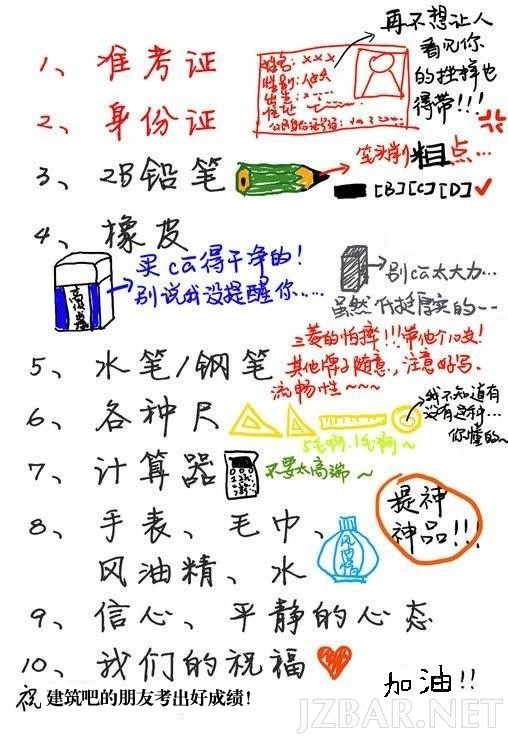 1、准考证
姓名：×××
性别：
出生：
住址
公民身份证号码：
再不想让人
看见你
的挫样也
得带!!!
2、身份证
3、2B铅笔
笔头削粗点...
[B][C][D]✓
4、橡皮
买ca得干净的!
别说我没提醒你.....
别ca太大力...
虽然你挺厚实的--
三菱的怕摔!!!带他个10支!
5、水笔/钢笔
其他牌子随意,注意好写.
流畅性~~~
6、各种尺
5毛啊.1毛啊~
我不知道有
没有这种...
你懂的~
7、计算器
不要太高端~
8、手表、毛巾、
风油精、水
风油精
提神
神品!!!
9、信心、平静的心态
10、我们的祝福
祝建筑吧的朋友考出好成绩!
加油!!
JZBAR.NET